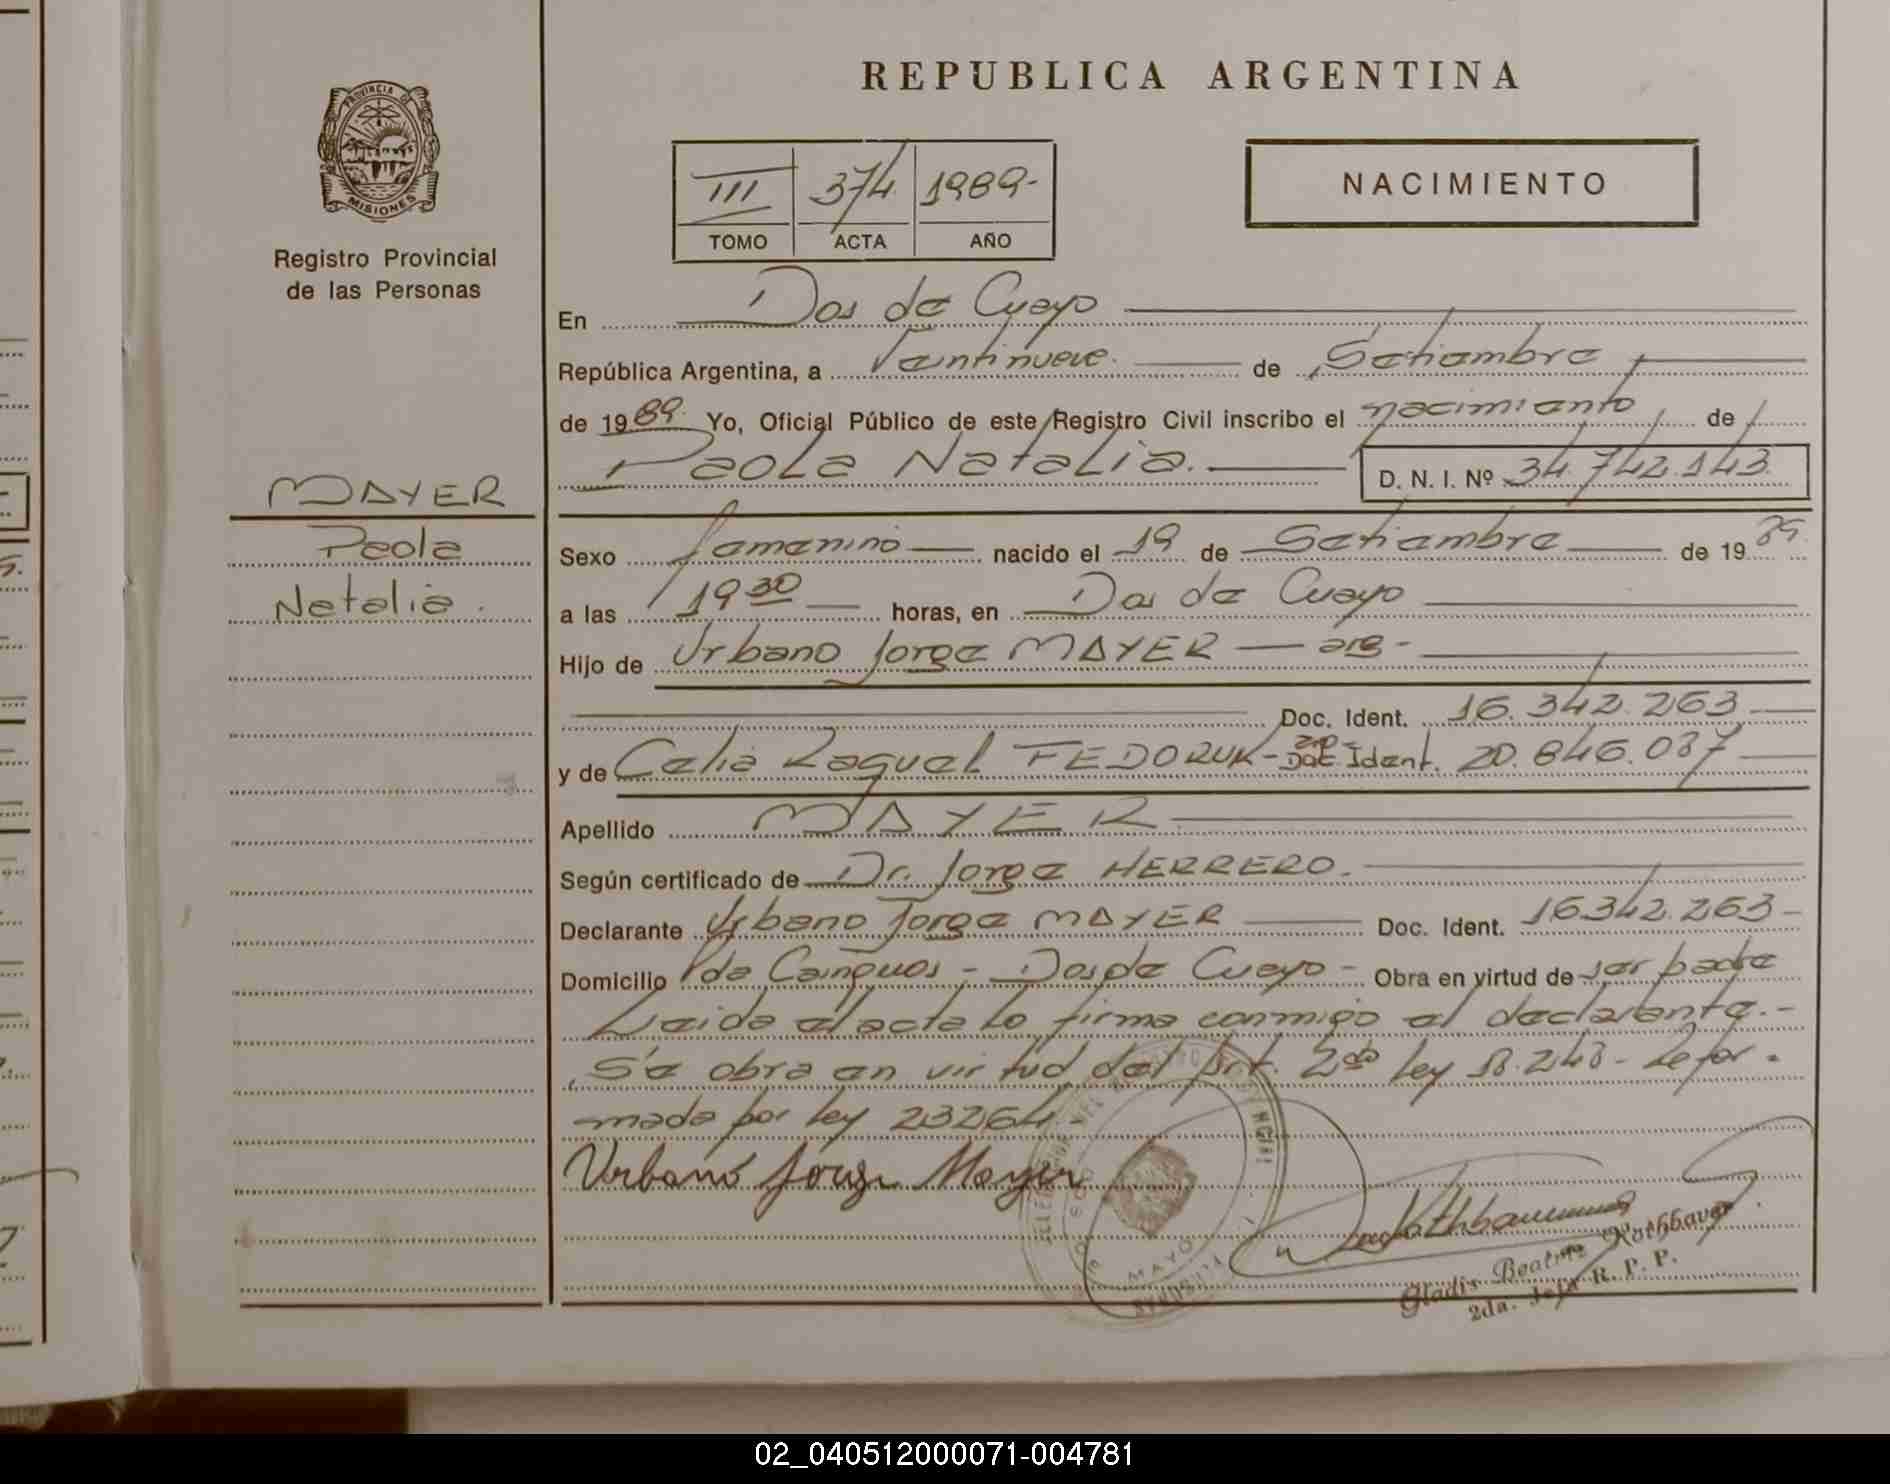 REPUBLICA ARGENTINA
PROVINCIA DE
MISIONES
Registro Provincial
de las Personas
III 374 1989-
TOMO ACTA AÑO
NACIMIENTO
En Dos de Mayo
República Argentina, a Veintinueve de Setiembre
de 1989 Yo, Oficial Público de este Registro Civil inscribo el nacimiento de
Paola Natalia. D. N. I. Nº 34.742.143
MAYER
Paola
Natalia.
Sexo femenino nacido el 19 de Setiembre de 1989.
a las 19 30 horas, en Dos de Mayo
Hijo de Urbano Jorge MAYER — arg-
Doc. Ident. 16.342.263
y de Celia Raquel FEDORUK- Doc. Ident. 20.846.037
Apellido MAYER
Según certificado de Dr. Jorge HERRERO.
Declarante Urbano Jorge MAYER Doc. Ident. 16342.263-
Domicilio Pda Cainguas - Dos de Mayo - Obra en virtud de ser padre
Leida el acta lo firma conmigo el declarante.-
Se obra en virtud del Art. 2do ley 18.248- Refor-
mada por ley 23264-
Urbano Jorge Mayer
MAYO
Gladis Beatriz Rothbauer
2da. Jefa R. P. P.
02_040512000071-004781